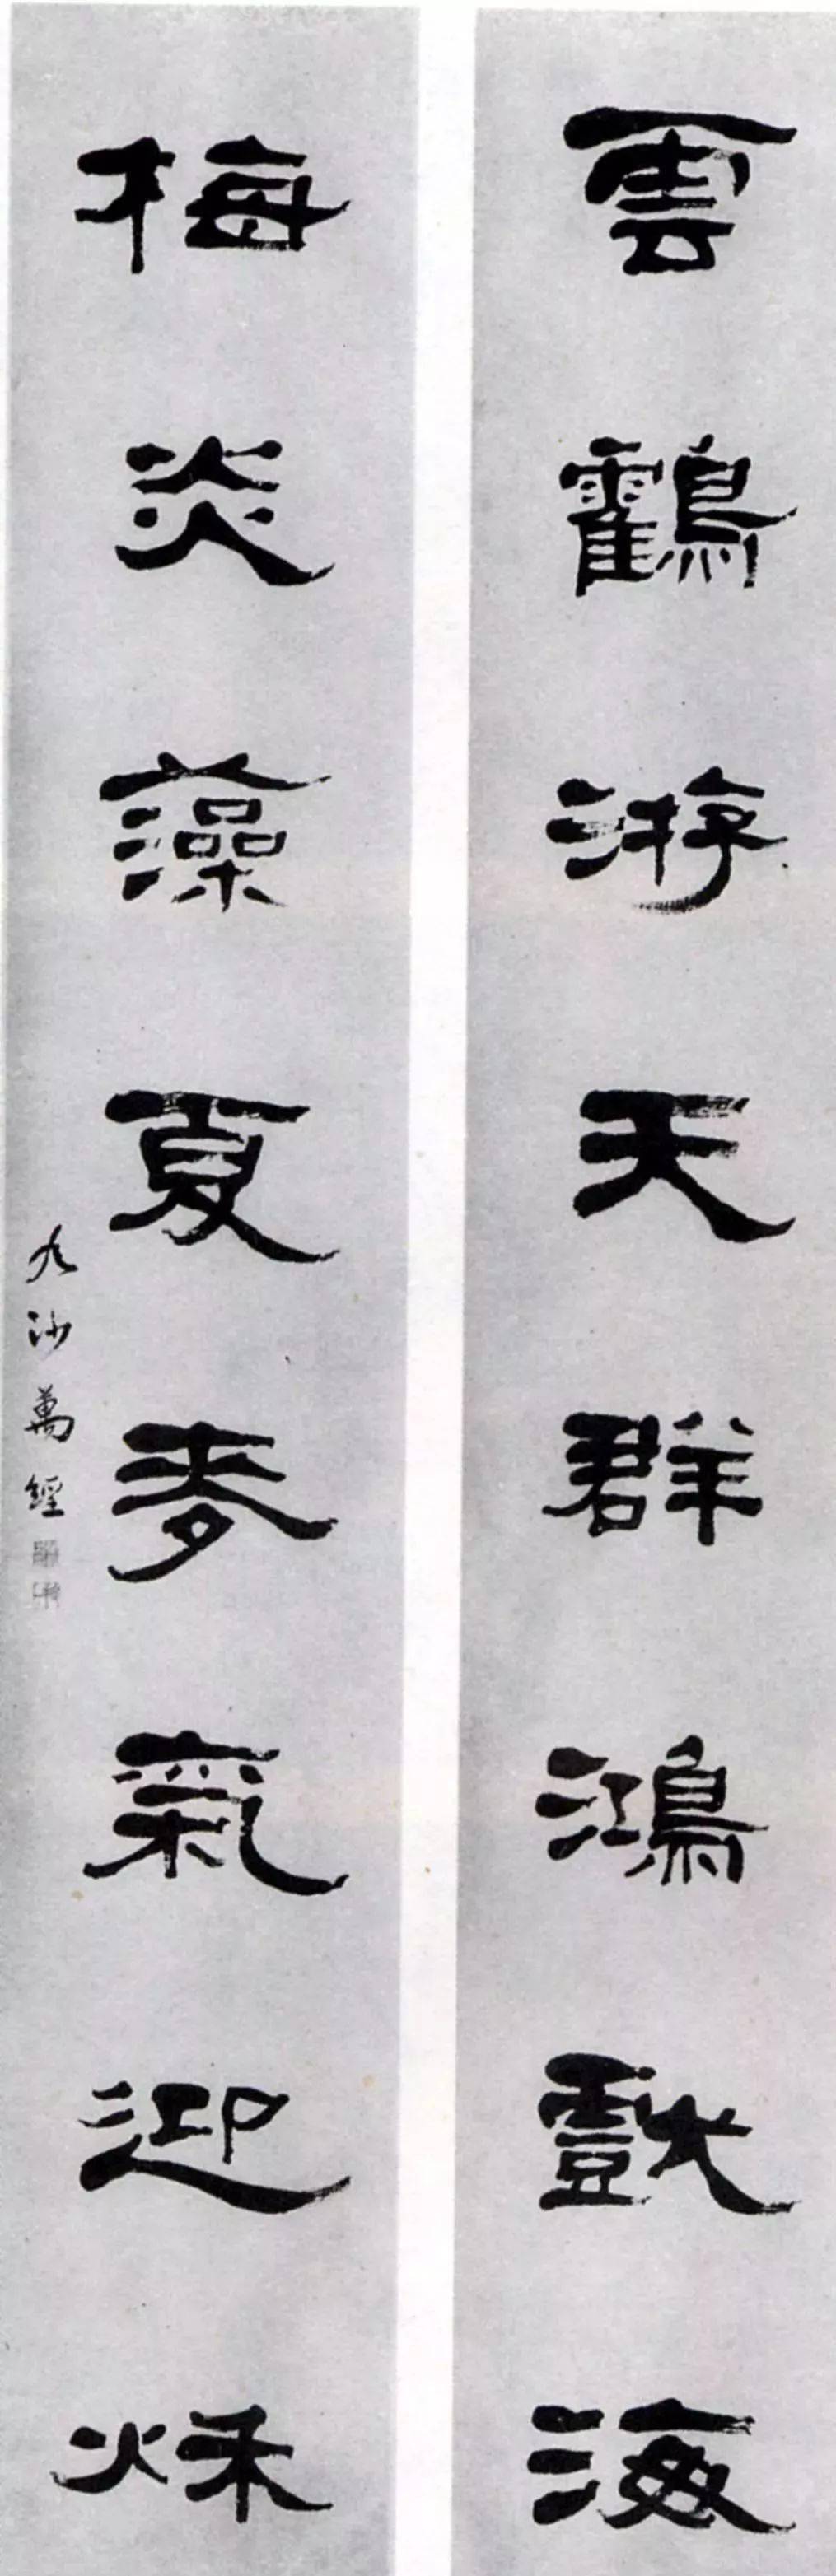 雲鸖游天群鴻戲海
梅炎藻夏麥氣迎秌
九沙萬經